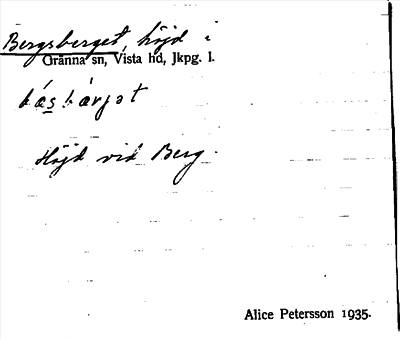 Bergsberget, höjd i
Gränna sn, Vista hd, Jkpg. l.
básbárjət
Höjd vid Berg.
Alice Petersson 1935.